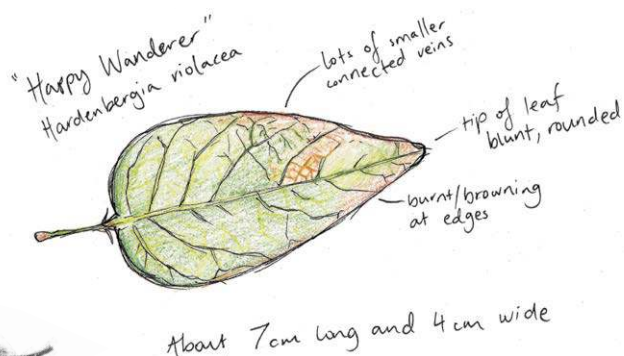 "Happy Wanderer"
Hardenbergia violacea
lots of smaller
connected veins
tip of leaf
blunt, rounded
burnt/browning
at edges
About 7cm long and 4cm wide